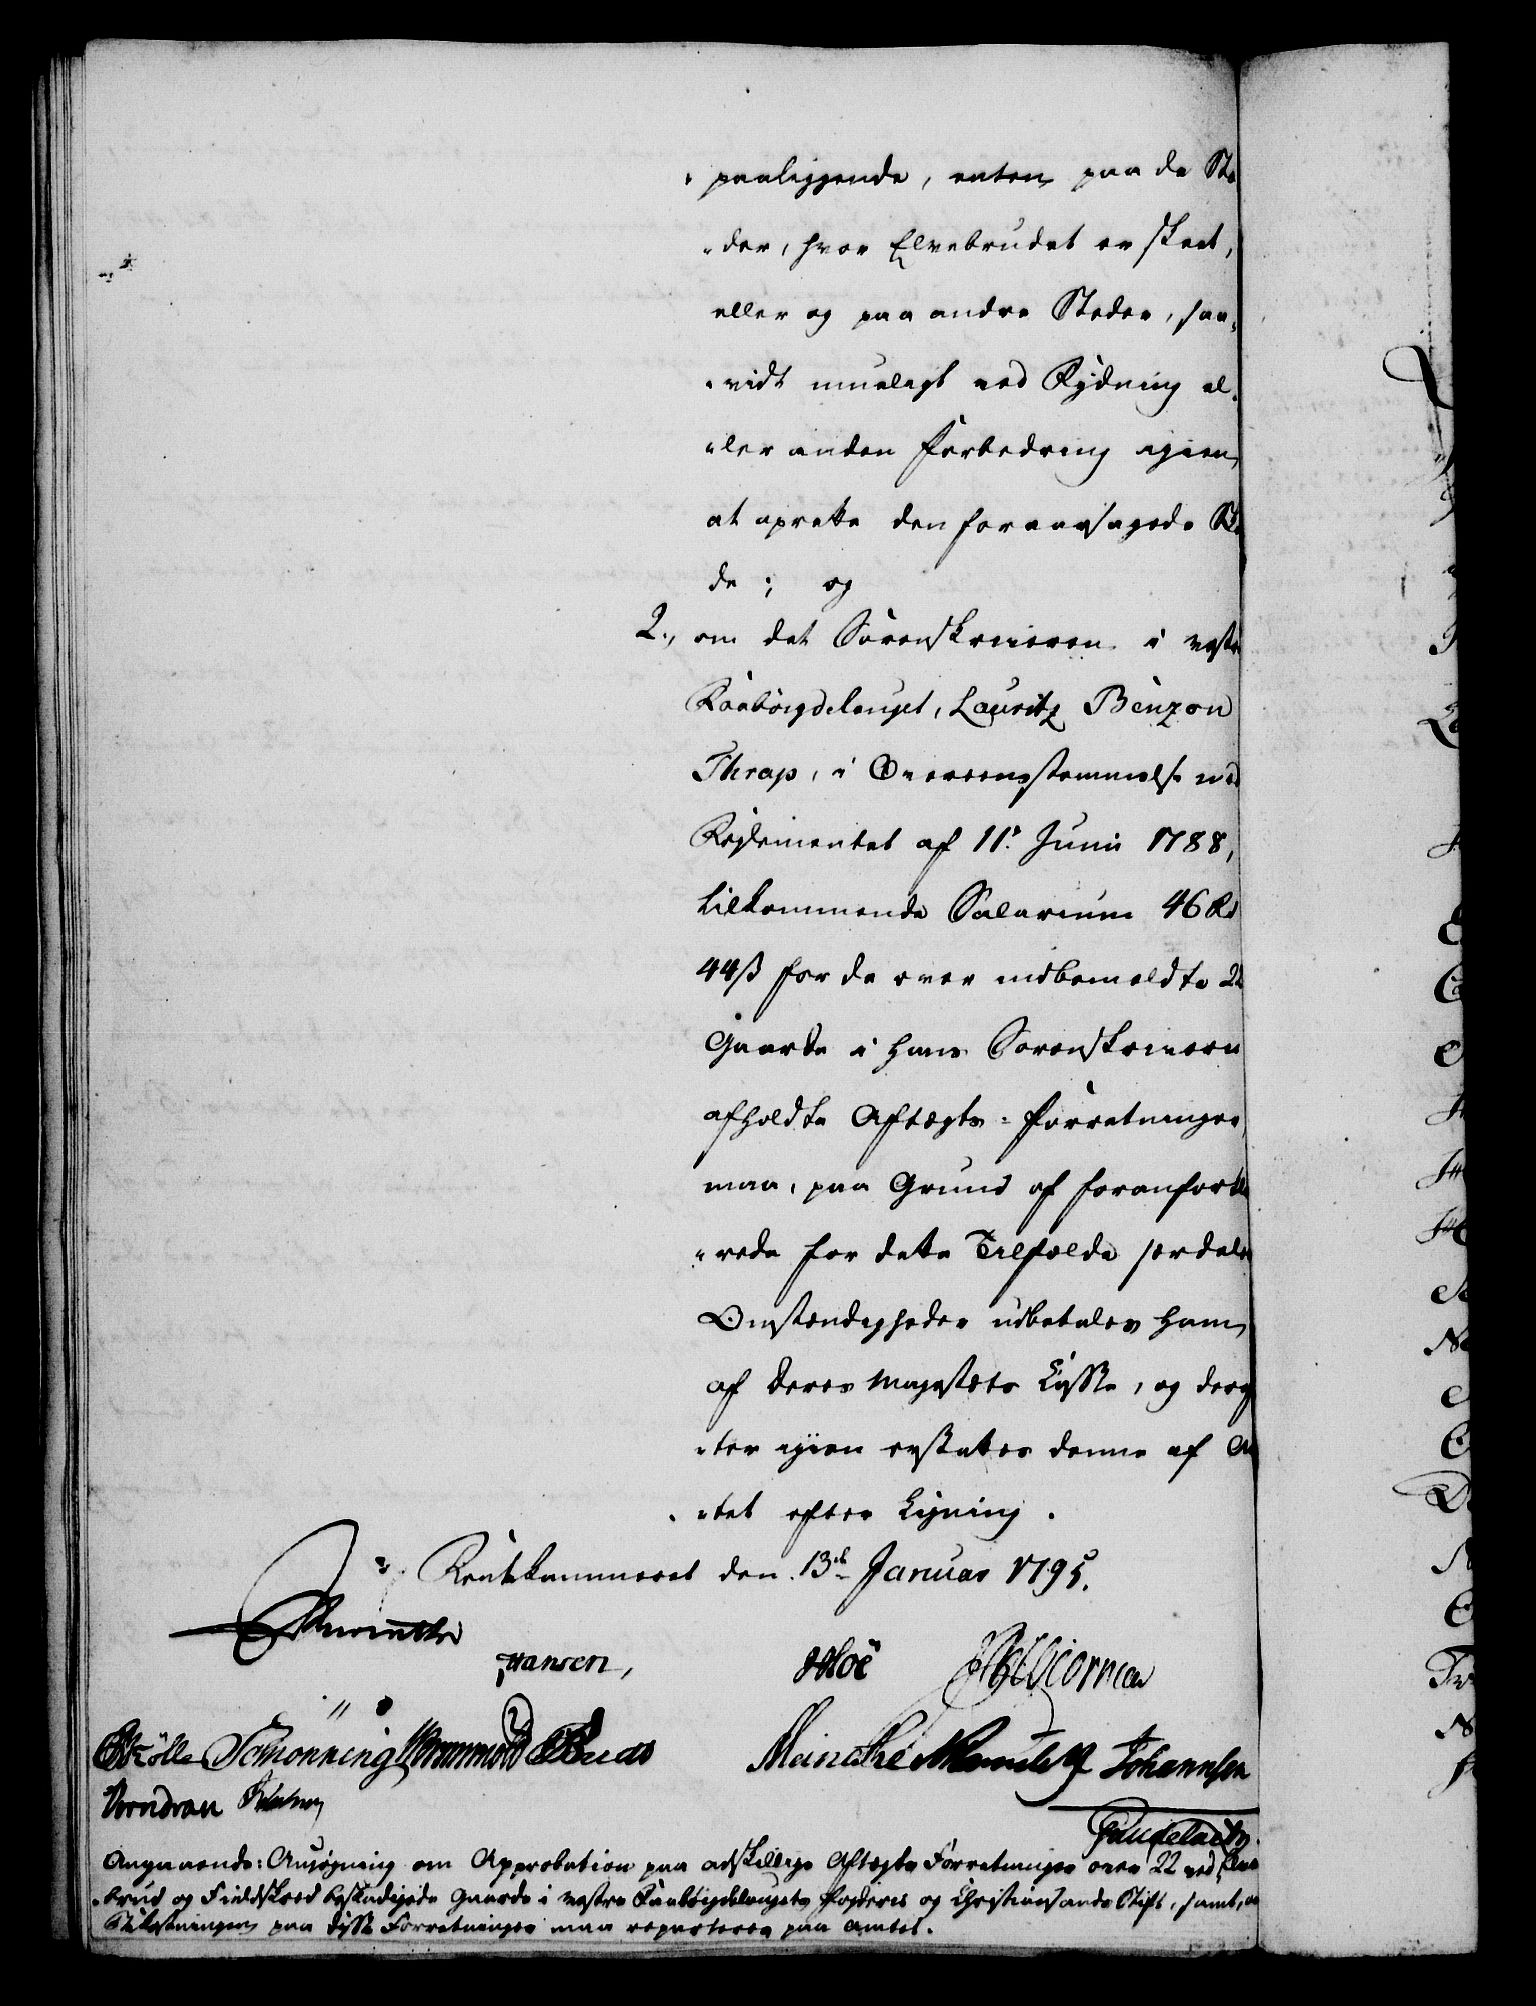 paaliggende, enten paa de Ste
der, hvor Elvebrudet er skeet,
eller og paa andre Steder, saa
vidt mueligt ved Rydning el
ler anden Forbedring igien
at oprette den foraarsagede Ska
de; og
2., om det Sorenskriveren i vestre
Raabøigdelauget, Lauritz Benzon
Thrap, i Overeensstemmelse med
Reglementet af 11te Junii 1788,
tilkommende Salarium 46 Rd
44 ß for de over indbemeldte 22
Gaarde i hans Sorenskriverie
afholdte Aftægts-Forretninger,
maa, paa Grund af foranførte
rede for dette Tilfælde særdeles
Omstændigheder udbetales ham
af Deres Majestæts Casse, og deref
ter igien erstattes denne af Am
tet efter Ligning.
Rentekammeret den 13de Januar 1795.
Hansen, Hoë Wormer
Schønning Meincke Johannsen
Angaaende: Ansøgning om Approbation paa adskillige Aftægts Forretninger over 22 ved Elve
brud og Fieldskred beskadigede Gaarde i vestre Raabøigdelaugets Fogderie og Christiansands Stift, samt, at
Bekostningen paa disse Forretninger maa reparteres paa Amtet.